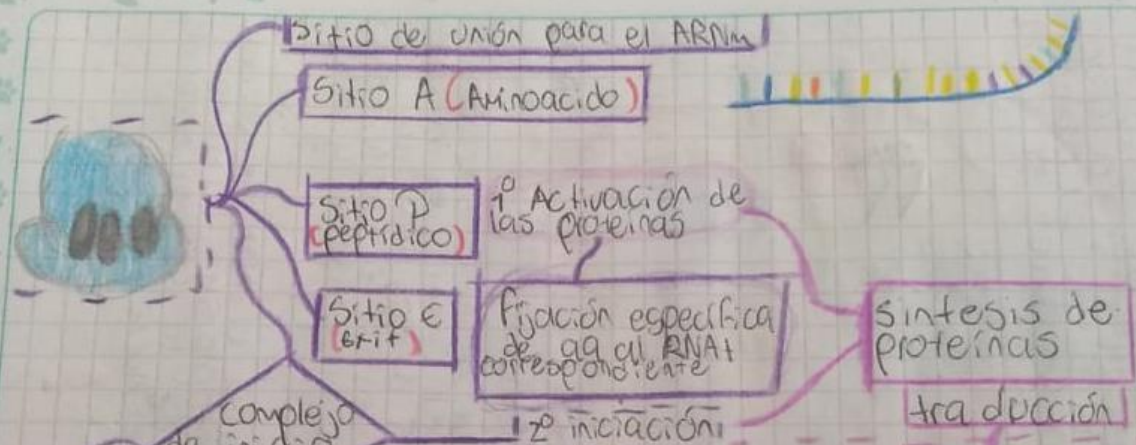 Sitio de unión para el ARNm
Sitio A (Aminoacido)
Sitio P
(peptídico)
1º Activación de
las proteinas
Sitio E
(Exit)
fijación específica
de aa al RNAt
correspondiente
sintesis de
proteínas
traducción
complejo
2º iniciación